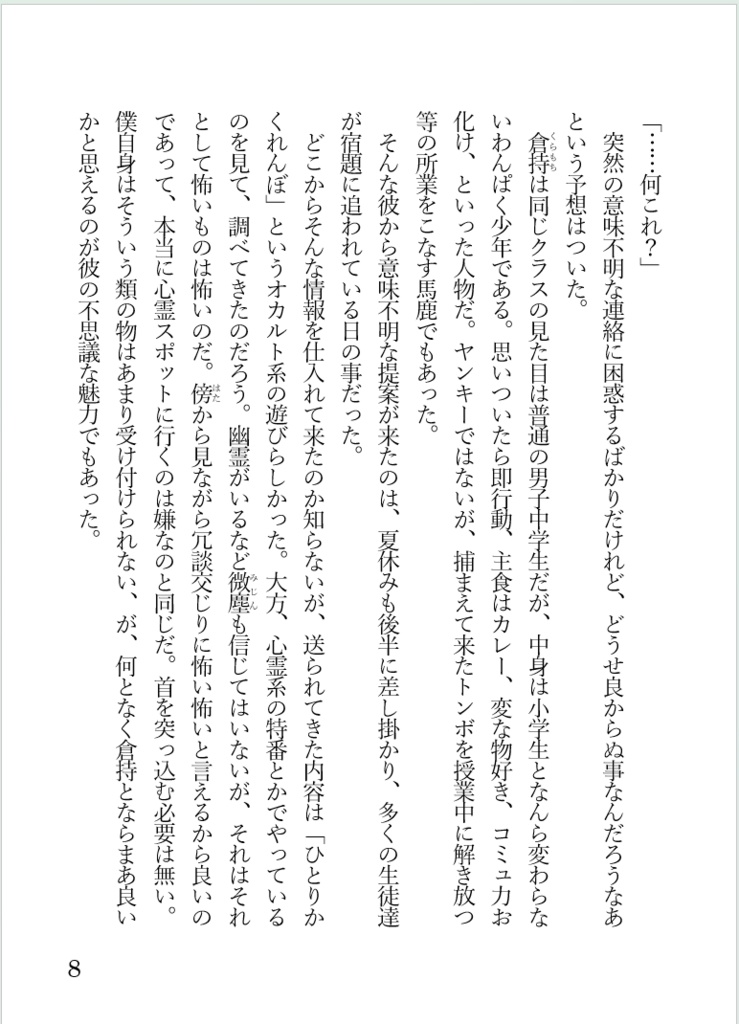 「……何これ？」
　突然の意味不明な連絡に困惑するばかりだけれど、どうせ良からぬ事なんだろうなあ
という予想はついた。
　倉持は同じクラスの見た目は普通の男子中学生だが、中身は小学生となんら変わらな
いわんぱく少年である。思いついたら即行動、主食はカレー、変な物好き、コミュ力お
化け、といった人物だ。ヤンキーではないが、捕まえて来たトンボを授業中に解き放つ
等の所業をこなす馬鹿でもあった。
　そんな彼から意味不明な提案が来たのは、夏休みも後半に差し掛かり、多くの生徒達
が宿題に追われている日の事だった。
　どこからそんな情報を仕入れて来たのか知らないが、送られてきた内容は「ひとりか
くれんぼ」というオカルト系の遊びらしかった。大方、心霊系の特番とかでやっている
のを見て、調べてきたのだろう。幽霊がいるなど微塵も信じてはいないが、それはそれ
として怖いものは怖いのだ。傍から見ながら冗談交じりに怖い怖いと言えるから良いの
であって、本当に心霊スポットに行くのは嫌なのと同じだ。首を突っ込む必要は無い。
僕自身はそういう類の物はあまり受け付けられない、が、何となく倉持とならまあ良い
かと思えるのが彼の不思議な魅力でもあった。
くらもち
みじん
はた
8